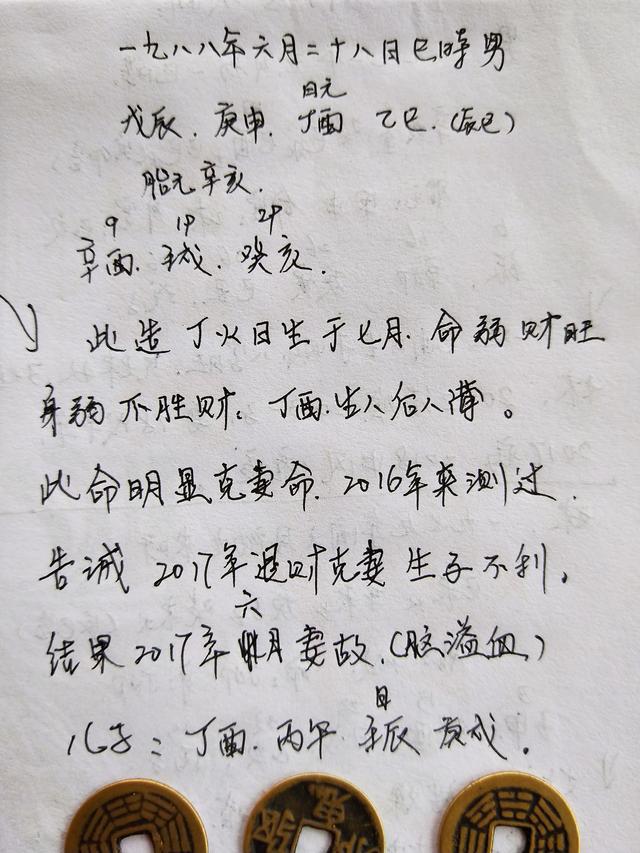 一九八八年六月二十八日巳時男
日元
戊辰．庚申．丁酉 乙巳．(辰巳)
胎元辛亥．
9 19 29
辛酉．壬戌．癸亥．
此造丁火日生于七月．命弱财旺
身弱不胜财．丁酉．生人后人薄。
此命明显克妻命．2016年来测过．
告诫2017年遇财克妻生子不利。
六
结果2017年月妻故．(脑溢血)
日
儿子：丁酉．丙午．壬辰 庚戌．